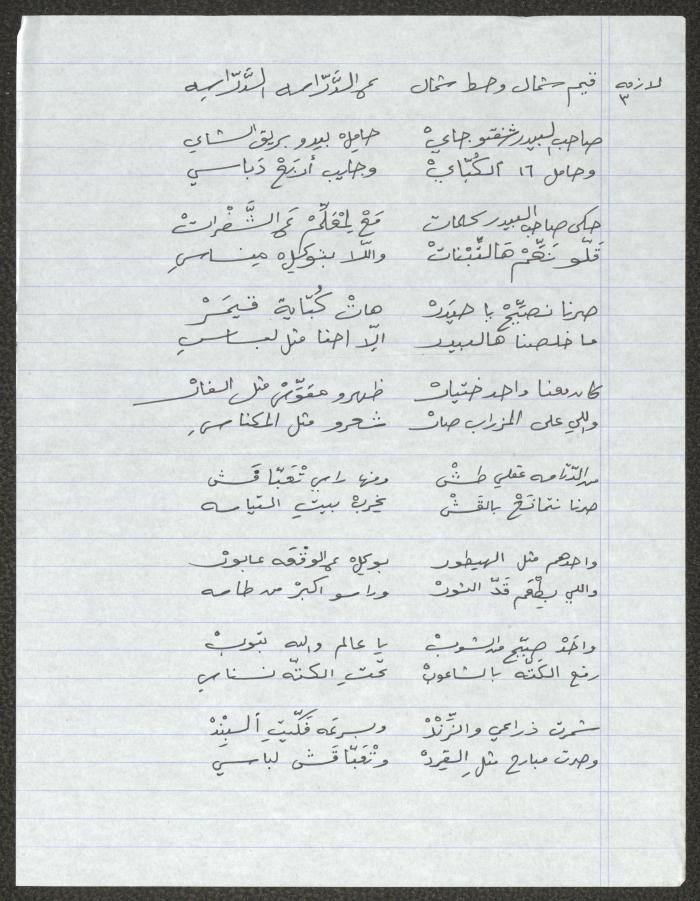 لازمه ٣ قيم شمال وحط شمال عَ الدَّرّاسه الدَّرّاسه
صاحب البيدر شفتو جايْ حامل بيدو بريق الشاي
وحامل ١٦ الكُبّايْ وجايب أربَعْ دَباسي
حكى صاحب البيدر كلمات مَعْ لِمْعَلِّمْ عَ الشَّفْراتْ
قَلّو نَعِّمْ هَالتِّبْنات واللّا بتوكل مِيناسي
صرنا نصَيِّحْ يا حيدَرْ هاتْ كُبّاية قيمَرْ
ما خلصنا هالبيدر الّا احنا مثل لعباسي
كان معنا واحد ختيارْ ظهرو مقوّسْ مثل الفارْ
واللي على المزراب صارْ شعرو مثل المكناسي
من الدّرّاسه عقلي طَشْ ومنها راسي تْعَبّا قَشْ
صرنا نتمانَعْ بالقَشْ يخربْ بيتِ التياسه
واحدهم مثل الهيطور بوكل عَ الوَقْعَه عابورْ
واللي بِطْعَم قَدّ التورْ وراسو اكبرْ من طاسه
واحَدْ صيّح من الشوبْ يا عالم والله بتوبْ
رفع الكَتّه بالشاعوبْ تحْتِ الكتّه نسناسي
شمرت ذراعي والزِّنْدْ وبسرعَه فَكّيتِ السِّنْد
وصرت مبارح مثلِ القِردْ وتْعَبّا قَش لباسي